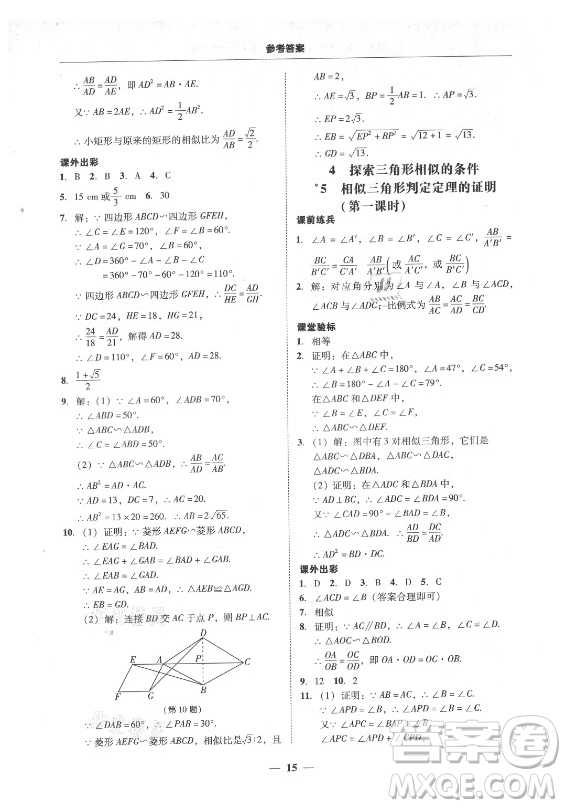 参考答案
∴ AB/AD = AD/AE，即 AD² = AB · AE.
又∵ AB = 2AE，∴ AD² = 1/2 AB².
∴ 小矩形与原来的矩形的相似比为 AD/AB = √2/2
课外出彩
1. B 2. B 3. C 4. C
5. 15 cm 或 5/3 cm 6. 30
7. 解：∵ 四边形 ABCD∽四边形 GFEH，
∴ ∠C = ∠E = 120°，∠B = ∠F = 60°.
∵ ∠A = ∠G = 70°，
∴ ∠D = 360° − ∠A − ∠B − ∠C
= 360° − 70° − 60° − 120° = 110°.
∵ 四边形 ABCD∽四边形 GFEH，∴ DC/HE = AD/GH.
∵ DC = 24，HE = 18，HG = 21，
∴ 24/18 = AD/21，解得 AD = 28.
∴ ∠D = 110°，AD = 28.
8. (1+√5)/2
9. 解：（1）∵ ∠A = 60°，∠ADB = 70°，
∴ ∠ABD = 50°.
∵ △ABC∽△ADB，
∴ ∠C = ∠ABD = 50°.
（2）∵ △ABC∽△ADB，∴ AB/AD = AC/AB.
∵ AD = 13，DC = 7，∴ AC = 20.
∴ AB² = 13 × 20 = 260. ∴ AB = 2√65.
10. （1）证明：∵ 菱形 AEFG∽菱形 ABCD，
∴ ∠EAG = ∠BAD.
∴ ∠EAG + ∠GAB = ∠BAD + ∠GAB.
∴ ∠EAB = ∠GAD.
∵ AE = AG，AB = AD，∴ △AEB≌△AGD.
∴ EB = GD.
（2）解：连接 BD 交 AC 于点 P，则 BP⊥AC.
D
E
A
P
C
F
G
B
（第 10 题）
∵ ∠DAB = 60°，∴ ∠PAB = 30°.
∵ 菱形 AEFG∽菱形 ABCD，相似比是√3∶2，且
AB = 2，
∴ AE = √3，BP = 1/2 AB = 1，AP = √3.
∴ EP = 2√3.
∴ EB = √(EP² + BP²) = √(12+1) = √13.
∴ GD = √13.
4 探索三角形相似的条件
*5 相似三角形判定定理的证明
（第一课时）
课前练兵
1. ∠A = ∠A′，∠B = ∠B′，∠C = ∠C′ AB/A′B′ =
BC/B′C′ = AC/A′C′ AB/A′B′（或 AC/A′C′，或 BC/B′C′）
2. 解：对应角分别为∠A 与∠A，∠B 与∠D，∠ACB 与
∠ACD；比例式为 AB/AD = AC/AC = BC/CD
课堂验标
1. 相等
2. 证明：在△ABC 中，
∵ ∠A + ∠B + ∠C = 180°，∠A = 47°，∠C = 54°，
∴ ∠B = 79°.
在△DEF 中，∵ ∠E = 79°，∴ ∠B = ∠E.
又∵ ∠A = ∠D，
∴ △ABC∽△DEF.
3. （1）解：图中有 3 对相似三角形，它们是
△ABC∽△DBA，△ABC∽△DAC，
△DBA∽△DAC.
（2）证明：∵ ∠BAC = 90°，∴ ∠B = 90° − ∠C.
∵ AD⊥BC，∴ ∠ADB = ∠CDA = 90°.
∴ ∠CAD = 90° − ∠C，∴ ∠B = ∠CAD.
∴ △ADB∽△CDA. ∴ AD/BD = DC/AD.
∴ AD² = BD · DC.
课外出彩
1. D 2. D 3. A 4. D 5. C
6. ∠ACD = ∠B（答案合理即可）
7. 相似
8. 证明：∵ AC∥BD，∴ ∠A = ∠B，∠C = ∠D.
∴ △OAC∽△OBD.
∴ OA/OB = OC/OD，即 OA · OD = OB · OC.
9. 12 10. 2
11. （1）证明：∵ AB = AC，∴ ∠B = ∠C.
∵ ∠APD = ∠B，∴ ∠APD = ∠B = ∠C.
∵ ∠APC = ∠APD + ∠DPC，
15
答案圈
MXQE.COM